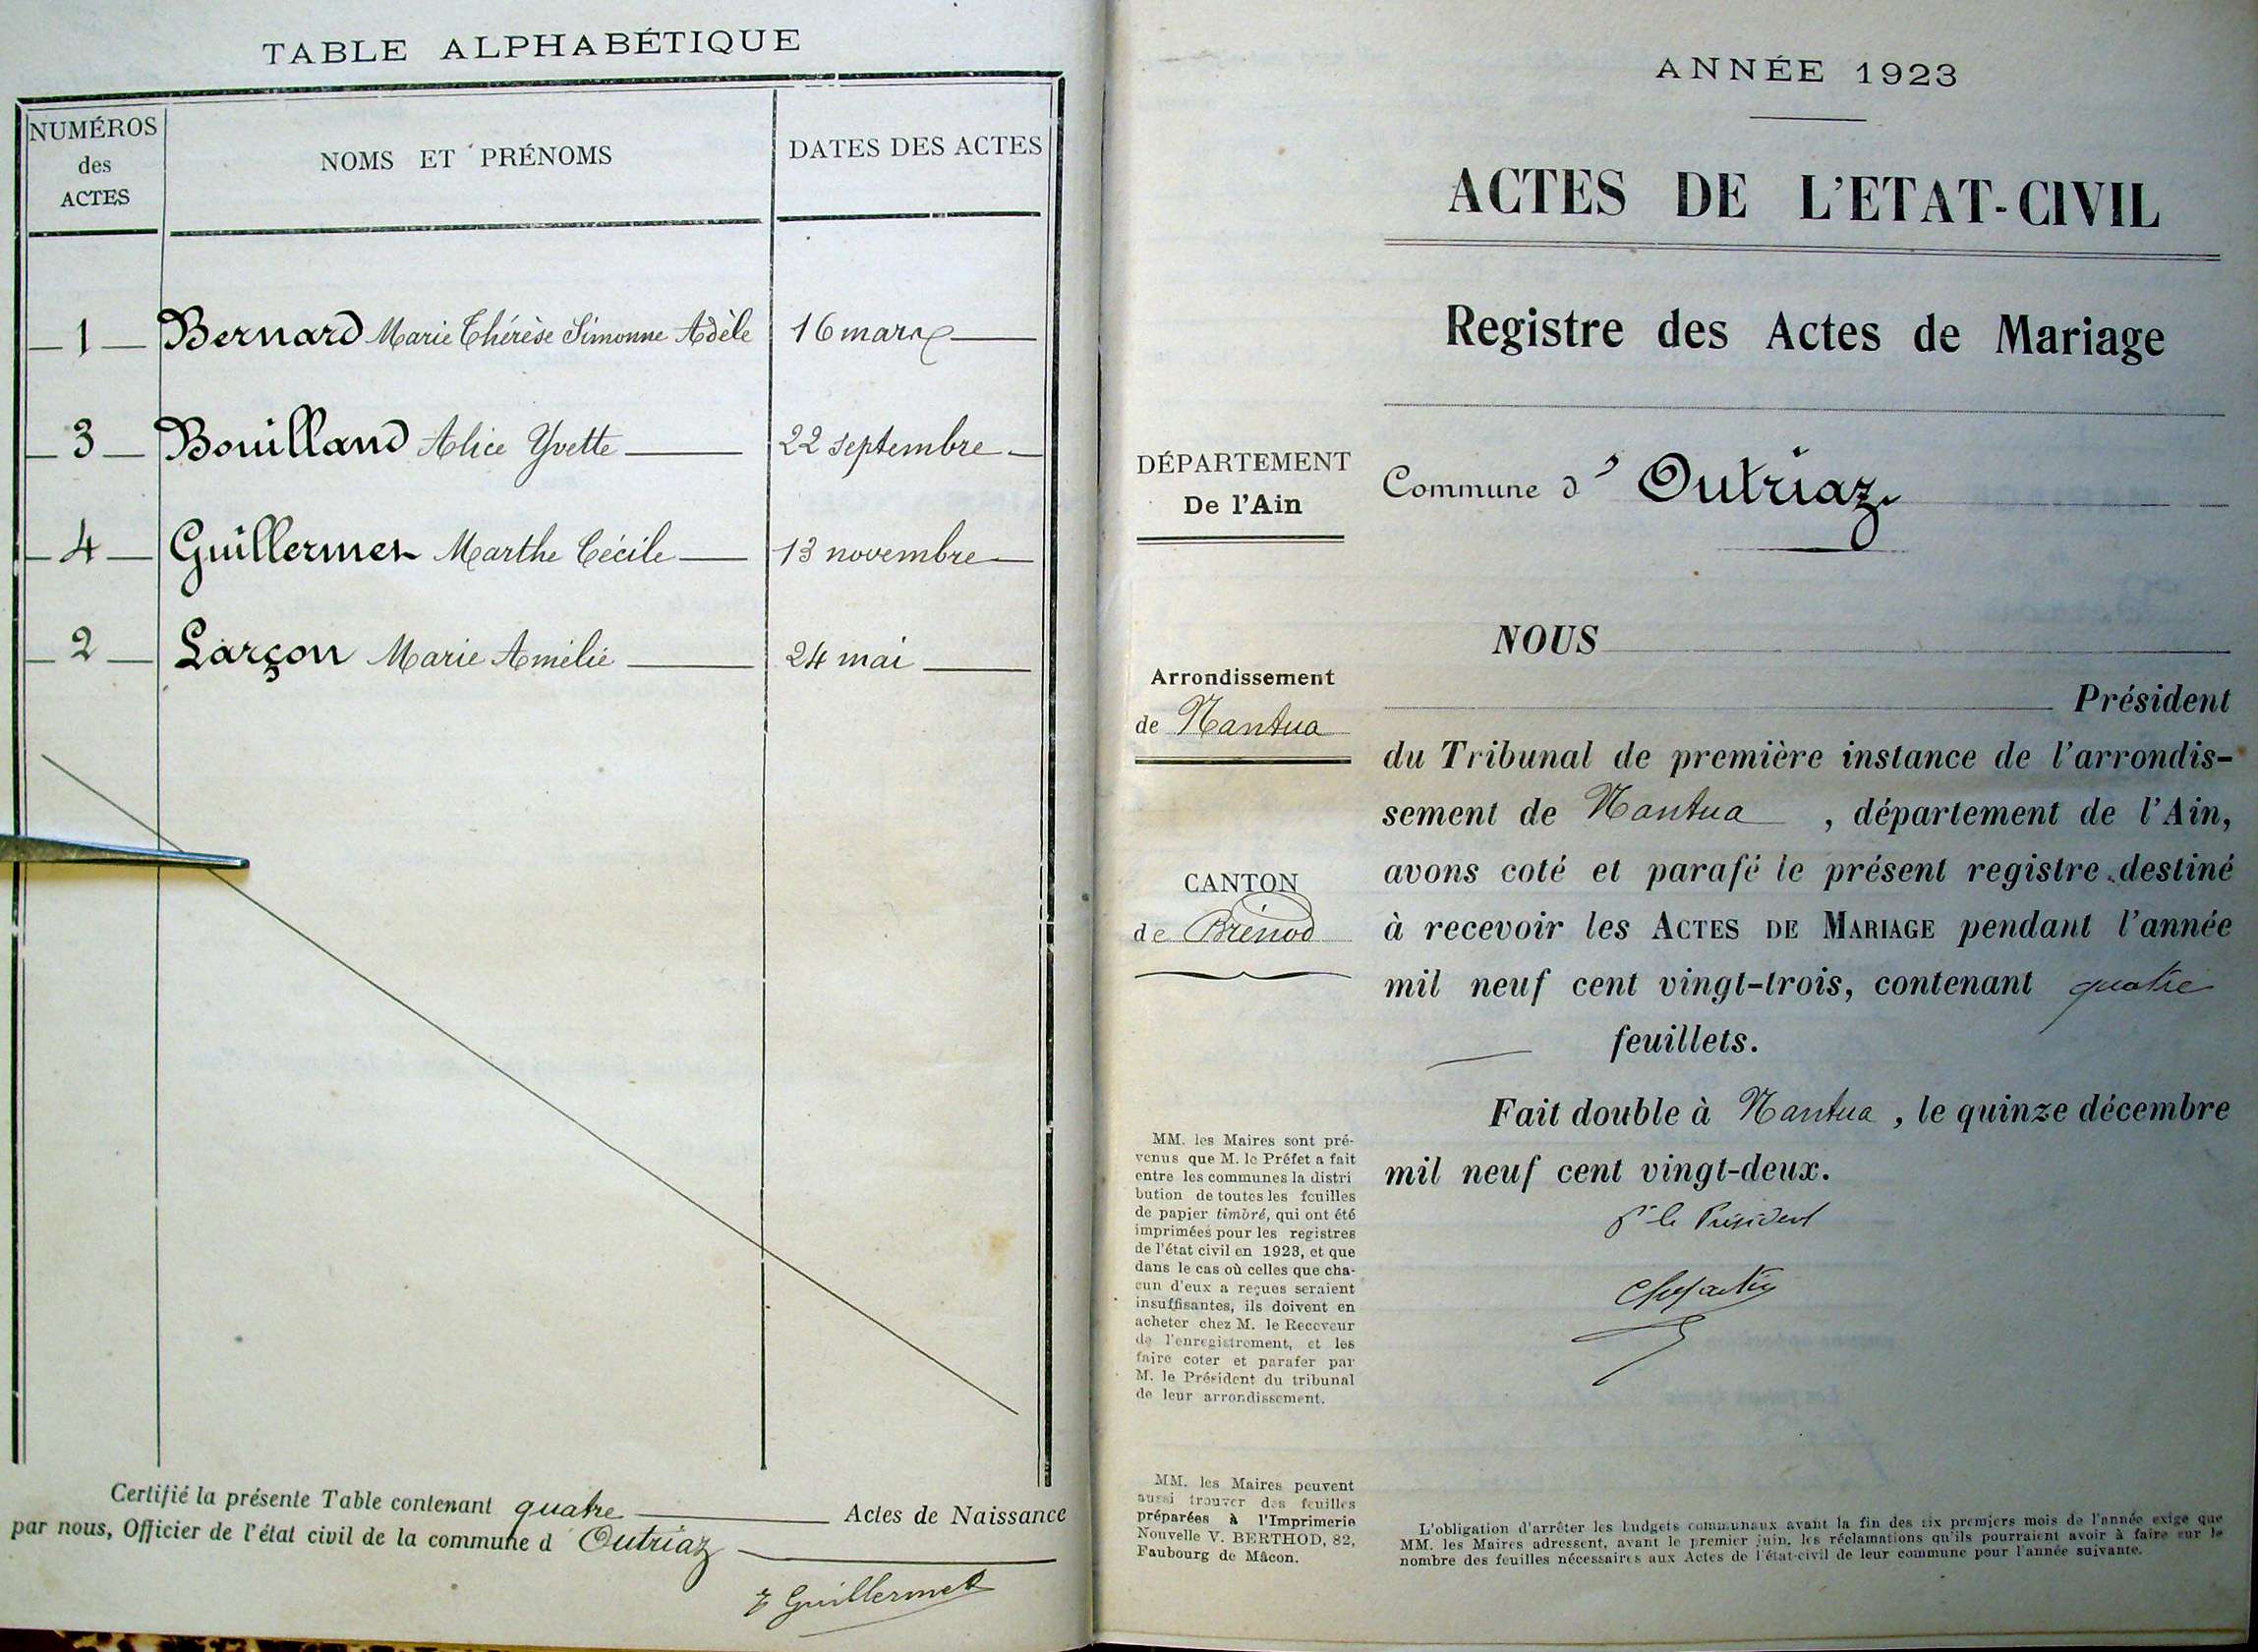 TABLE ALPHABÉTIQUE
NUMÉROS
des
ACTES
NOMS ET PRÉNOMS
DATES DES ACTES
1 Bernard Marie Thérèse Simonne Adèle 16 mars
3 Bouilland Alice Yvette 22 septembre
4 Guillermet Marthe Cécile 13 novembre
2 Larçon Marie Amélie 24 mai
Certifié la présente Table contenant quatre Actes de Naissance
par nous, Officier de l'état civil de la commune d'Outriaz
Guillermet
ANNÉE 1923
ACTES DE L'ETAT-CIVIL
Registre des Actes de Mariage
DÉPARTEMENT
De l'Ain
Commune d' Outriaz
Arrondissement
de Nantua
CANTON
de Brénod
NOUS
Président
du Tribunal de première instance de l'arrondis-
sement de Nantua , département de l'Ain,
avons coté et parafé le présent registre destiné
à recevoir les ACTES DE MARIAGE pendant l'année
mil neuf cent vingt-trois, contenant quatre
feuillets.
Fait double à Nantua , le quinze décembre
mil neuf cent vingt-deux.
Pr le Président
MM. les Maires sont pré-
venus que M. le Préfet a fait
entre les communes la distri
bution de toutes les feuilles
de papier timbré, qui ont été
imprimées pour les registres
de l'état civil en 1923, et que
dans le cas où celles que cha-
cun d'eux a reçues seraient
insuffisantes, ils doivent en
acheter chez M. le Receveur
de l'enregistrement, et les
faire coter et parafer par
M. le Président du tribunal
de leur arrondissement.
MM. les Maires peuvent
aussi trouver des feuilles
préparées à l'Imprimerie
Nouvelle V. BERTHOD, 82,
Faubourg de Mâcon.
L'obligation d'arrêter les budgets communaux avant la fin des six premiers mois de l'année exige que
MM. les Maires adressent, avant le premier juin, les réclamations qu'ils pourraient avoir à faire sur le
nombre des feuilles nécessaires aux Actes de l'état-civil de leur commune pour l'année suivante.